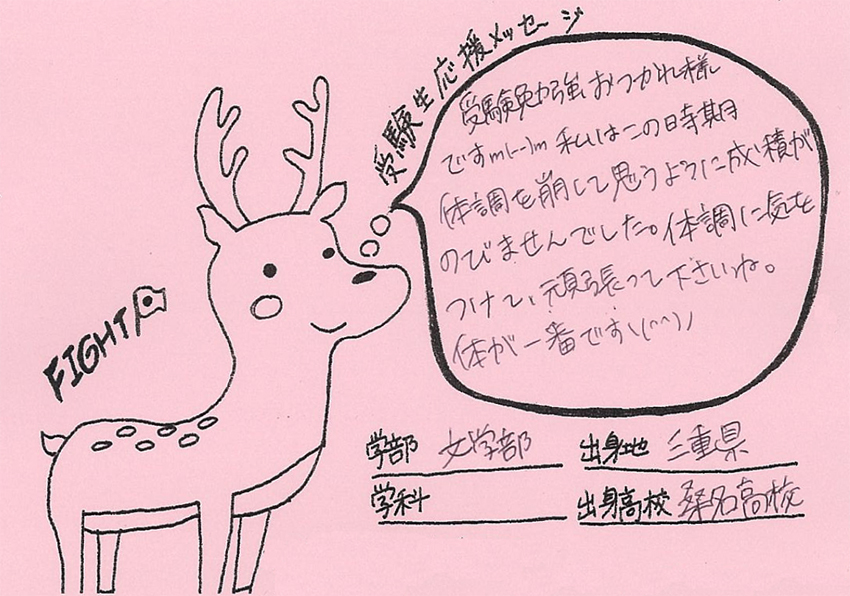 受験生応援メッセージ
受験勉強おつかれ様
ですm(--)m 私はこの時期
体調を崩して思うように成積が
のびませんでした。体調に気を
つけて、頑張って下さいね。
体が一番です\(^^)/
FIGHT!
学部 文学部
出身地 三重県
学科
出身高校 桑名高校